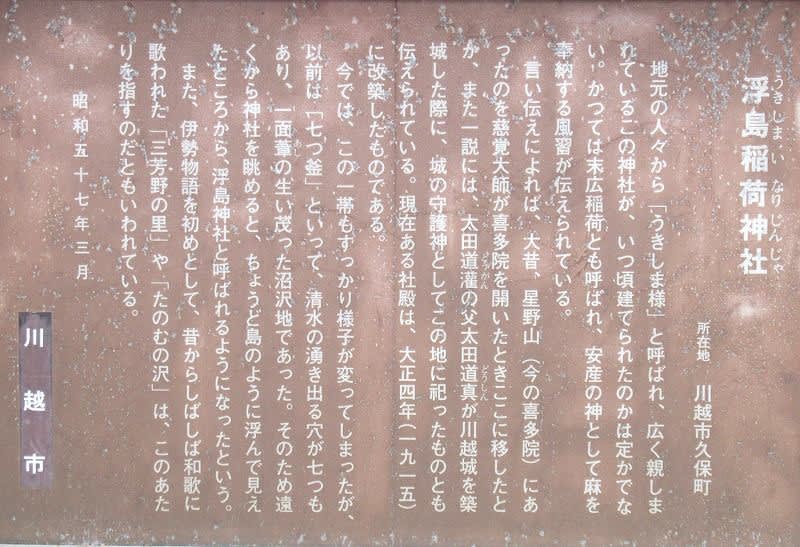 浮島稲荷神社
うきしまいなりじんじゃ
所在地　川越市久保町
地元の人々から「うきしま様」と呼ばれ、広く親しま
れているこの神社が、いつ頃建てられたのかは定かでな
い。かつては末広稲荷とも呼ばれ、安産の神として麻を
奉納する風習が伝えられている。
言い伝えによれば、大昔、星野山（今の喜多院）にあ
ったのを慈覚大師が喜多院を開いたときここに移したと
か、また一説には、太田道灌の父太田道真が川越城を築
どうかん
どうしん
城した際に、城の守護神としてこの地に祀ったものとも
伝えられている。現在ある社殿は、大正四年（一九一五）
に改築したものである。
今では、この一帯もすっかり様子が変ってしまったが、
以前は「七つ釜」といって、清水の湧き出る穴が七つも
あり、一面葦の生い茂った沼沢地であった。そのため遠
あし
くから神社を眺めると、ちょうど島のように浮んで見え
たところから、浮島神社と呼ばれるようになったという。
また、伊勢物語を初めとして、昔からしばしば和歌に
歌われた「三芳野の里」や「たのむの沢」は、このあた
りを指すのだともいわれている。
昭和五十七年三月
川越市